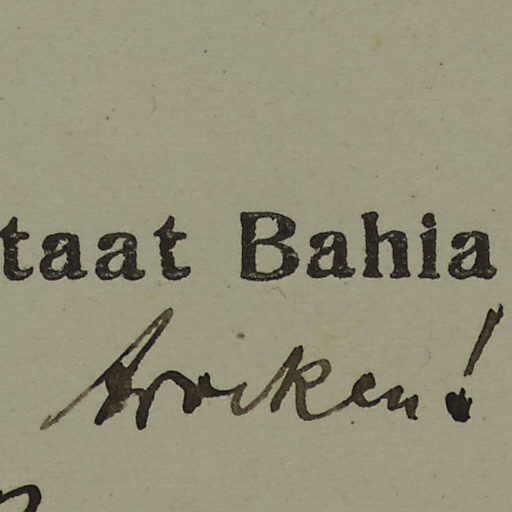 taat Bahia
trocken!